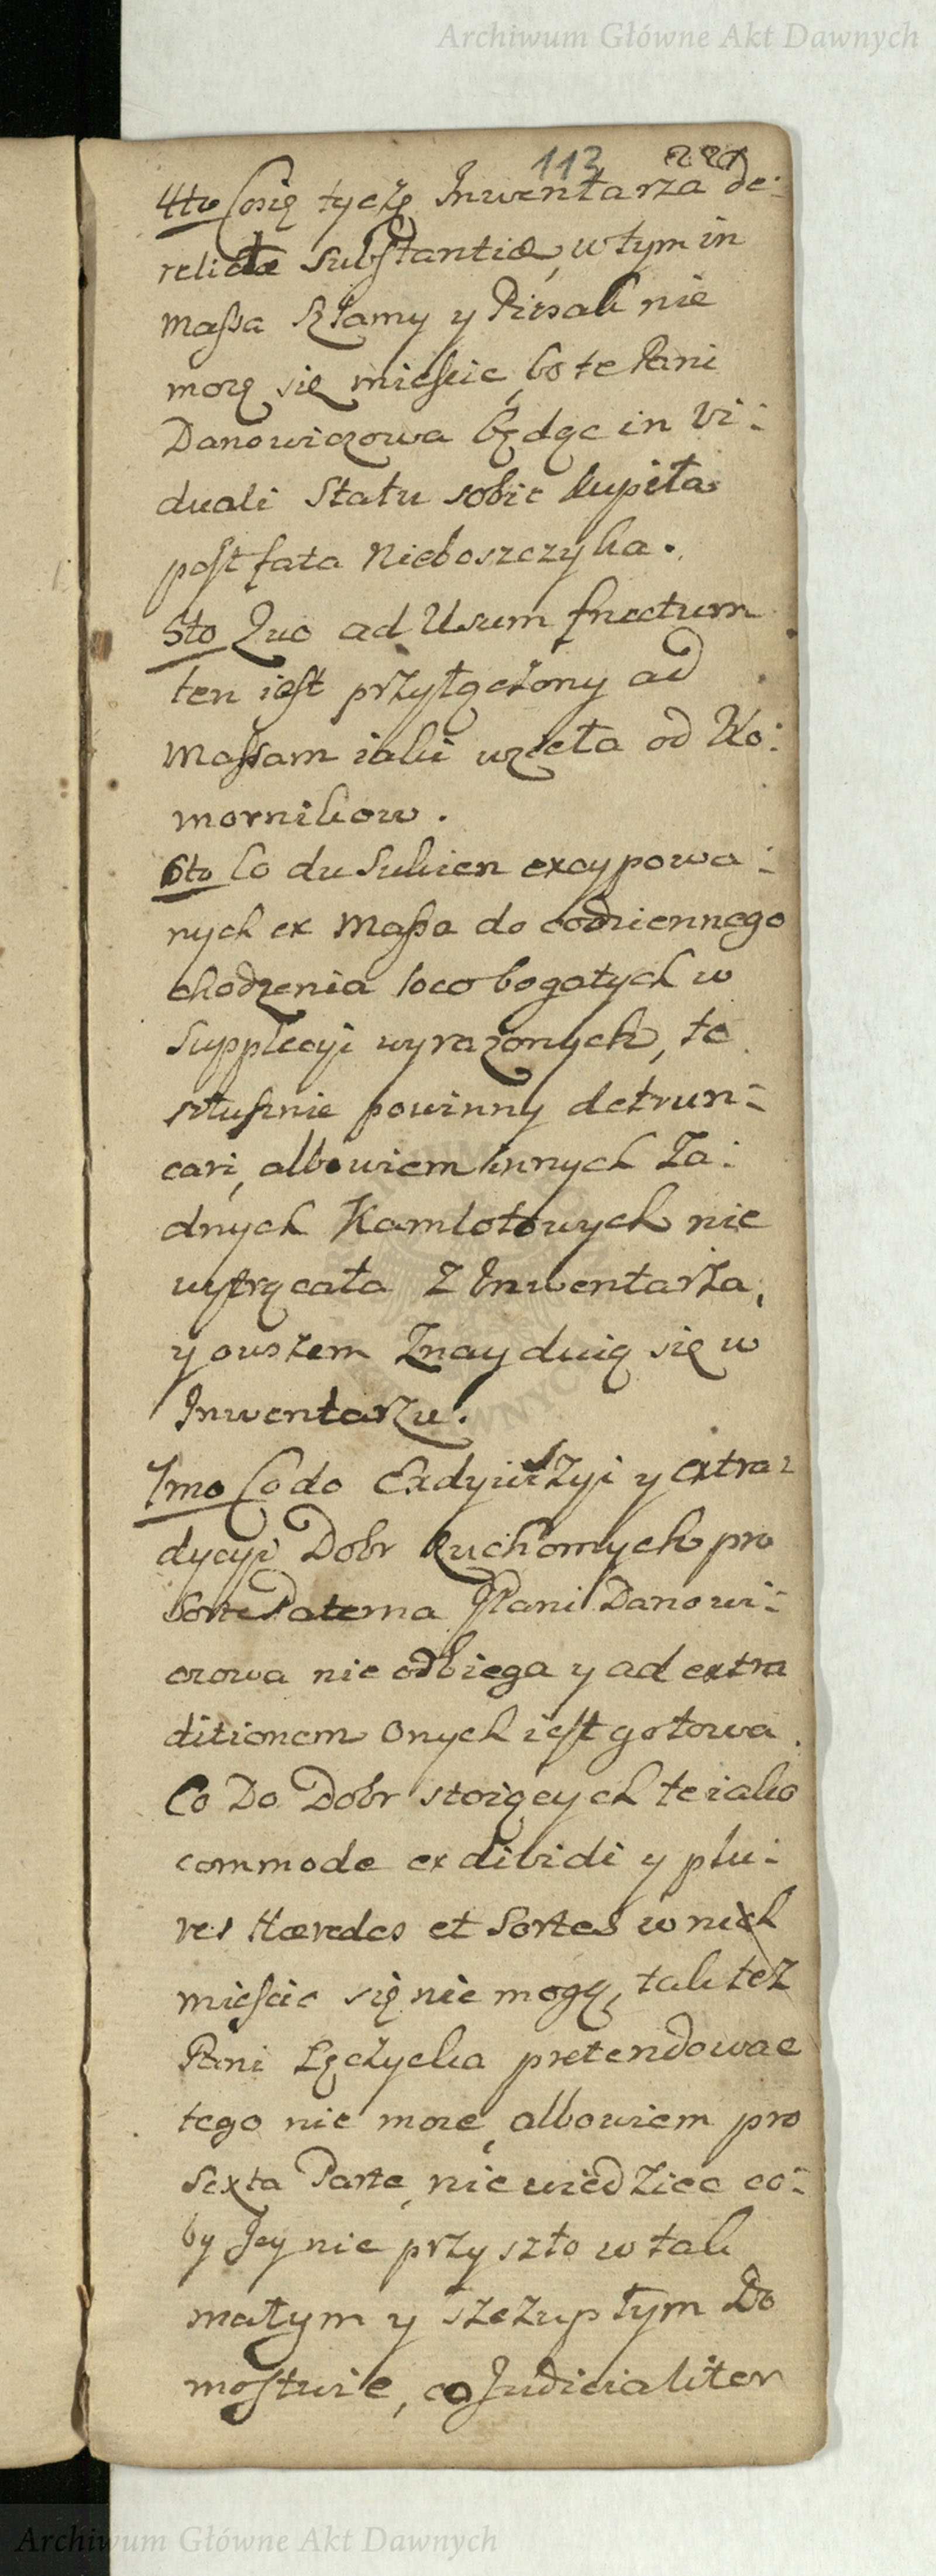 Archiwum Główne Akt Dawnych
113 221
4to Cosię tyczę Inwentarza de:
relictæ substantiæ, w tym in
Massa Szlamy y Piesak nie
mozą się mieścic, bo te Pani
Danowiczowa będąc in Vi:
duali Statu sobie kupiła
post fata Nieboszczyka.
5to Quo ad Usum fructum
ten iest przyłączony ad
Massam iaki wzieła od Ko:
mornikow.
6to Co du Sukien excypowa:
nych ex Massa do codziennego
chodzenia loco bogatych w
Supplecyi wyrazonych, te
słusznie powinny detrun:
cari, albowiem innych Za:
dnych Kamlotowych nie
wytrącała Z Inwentarza,
y owszem Znayduią się w
Inwentarzu.
7mo Co do Exdywizyi y extra:
dycyi Dobr Ruchomych pro
Sorte Paterna JPani Danowi:
czowa nie odbiega y ad extra
ditionem Onych iest gotowa.
Co Do Dobr stoiących te iako
commode ex dividi y plu:
res Hæredes et Sortes w nich
mieścic się nie mogą, tak też
Pani Łęczycka pretendowac
tego nie moze, albowiem pro
Sexta Parte, nie wiedziec co:
by Jey nie przyszło w tak
małym y szczupłym Do
mostwie, co Judicialiter
Archiwum Główne Akt Dawnych